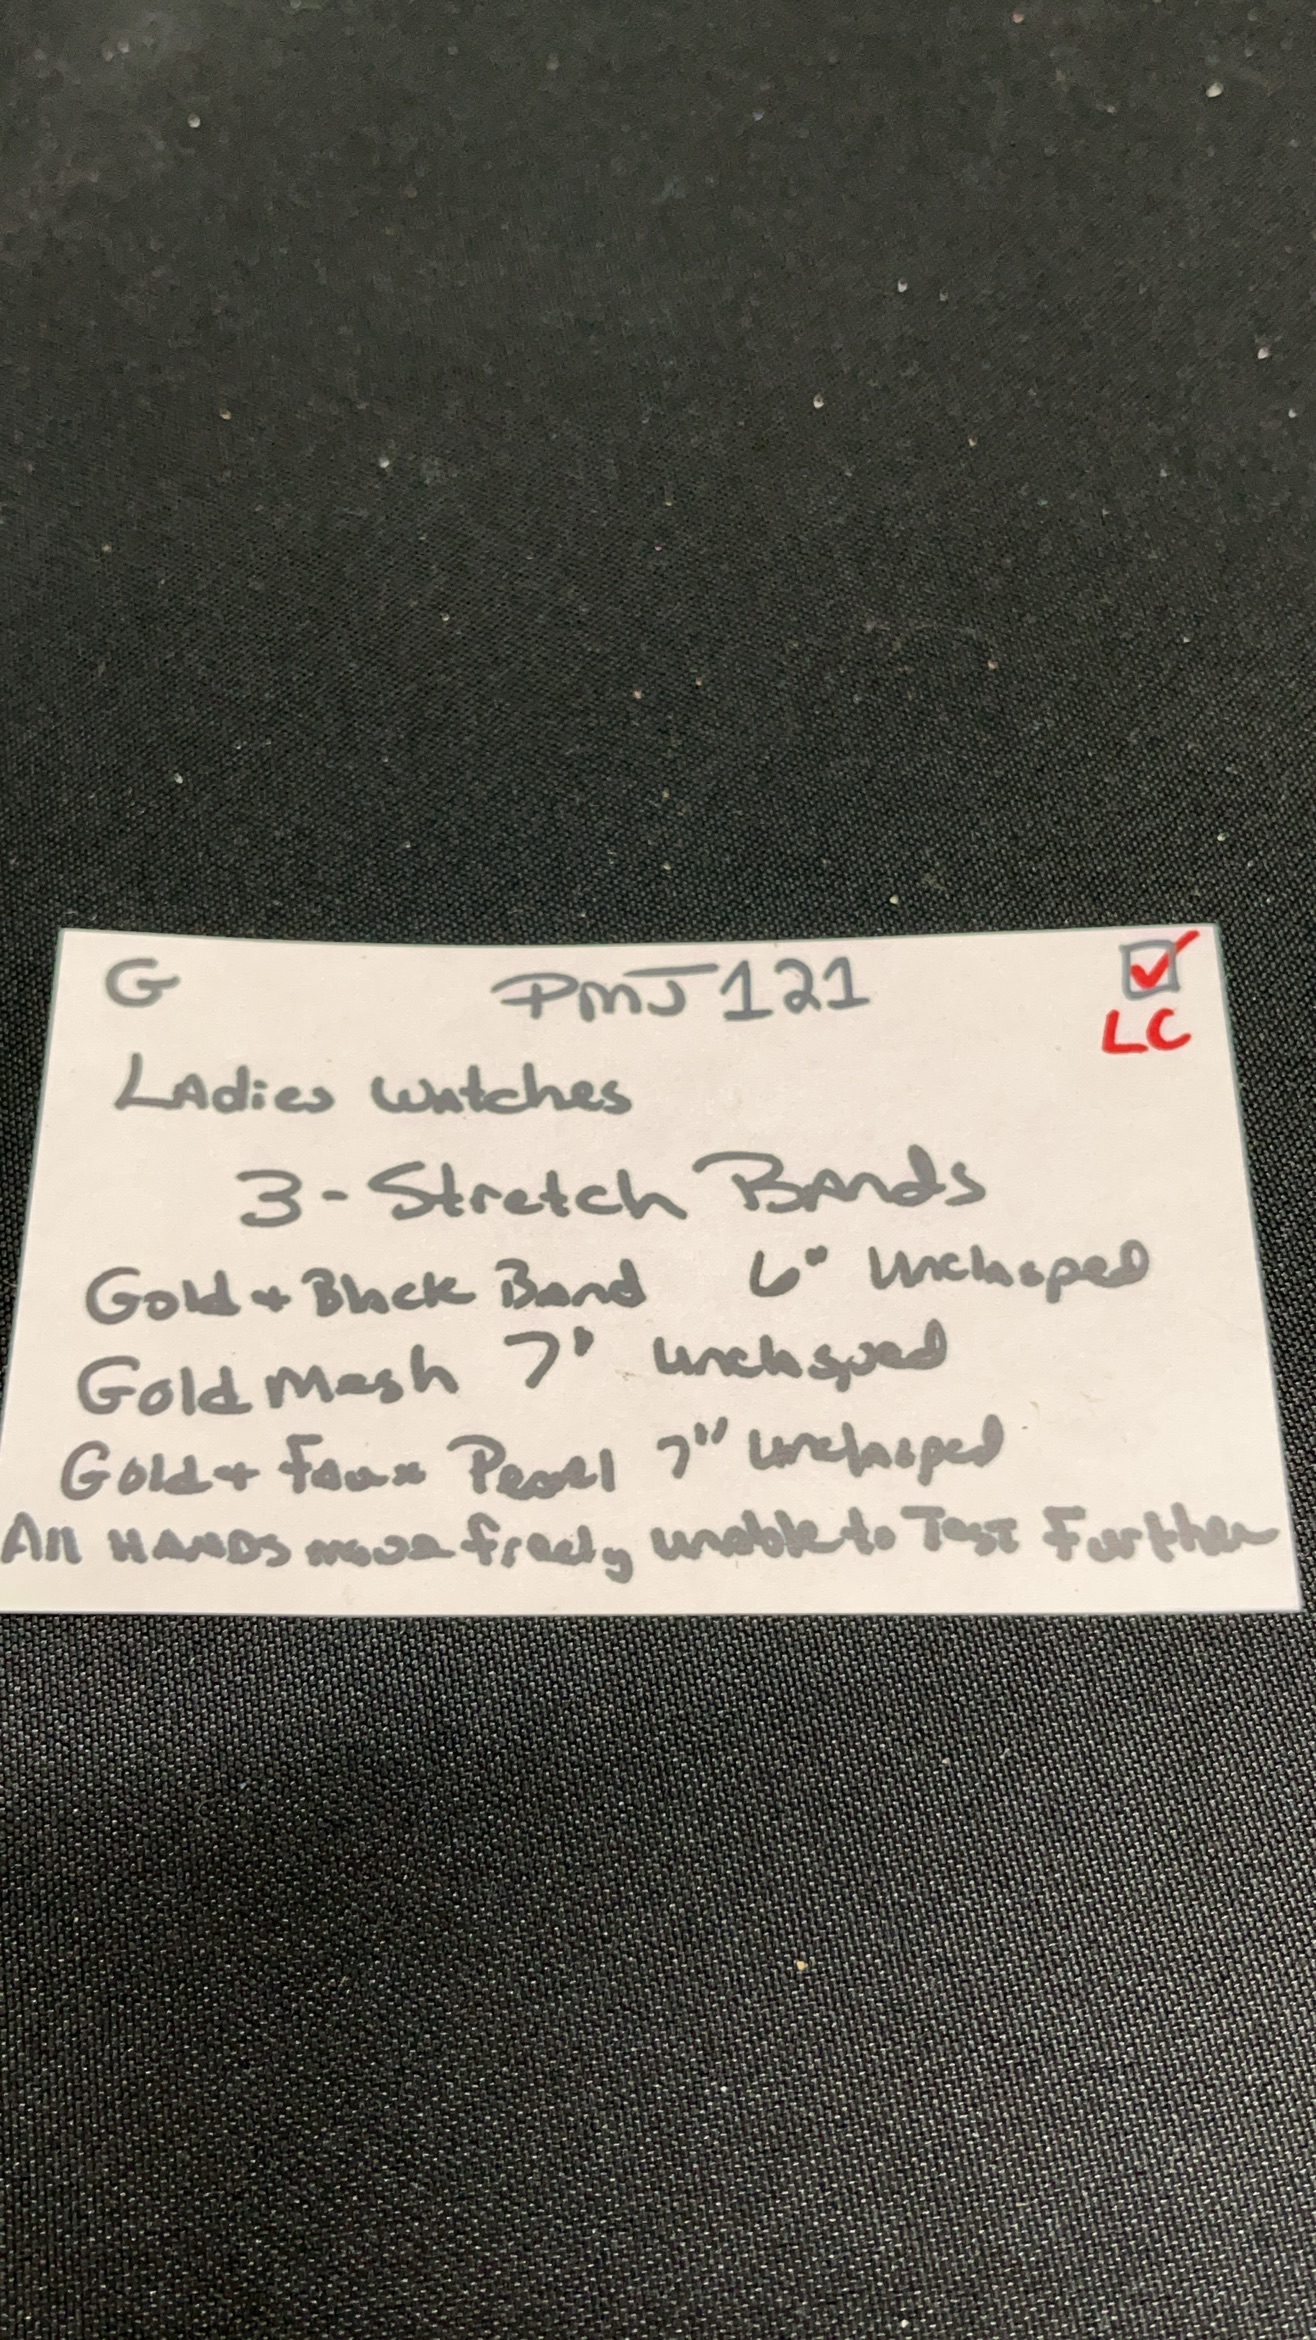 G PMJ121 ✓
LC
Ladies Watches
3-Stretch Bands
Gold + Black Band 6" Unclasped
Gold Mesh 7" unclasped
Gold + Faux Pearl 7" Unclasped
All HANDS move freely unable to Test Further